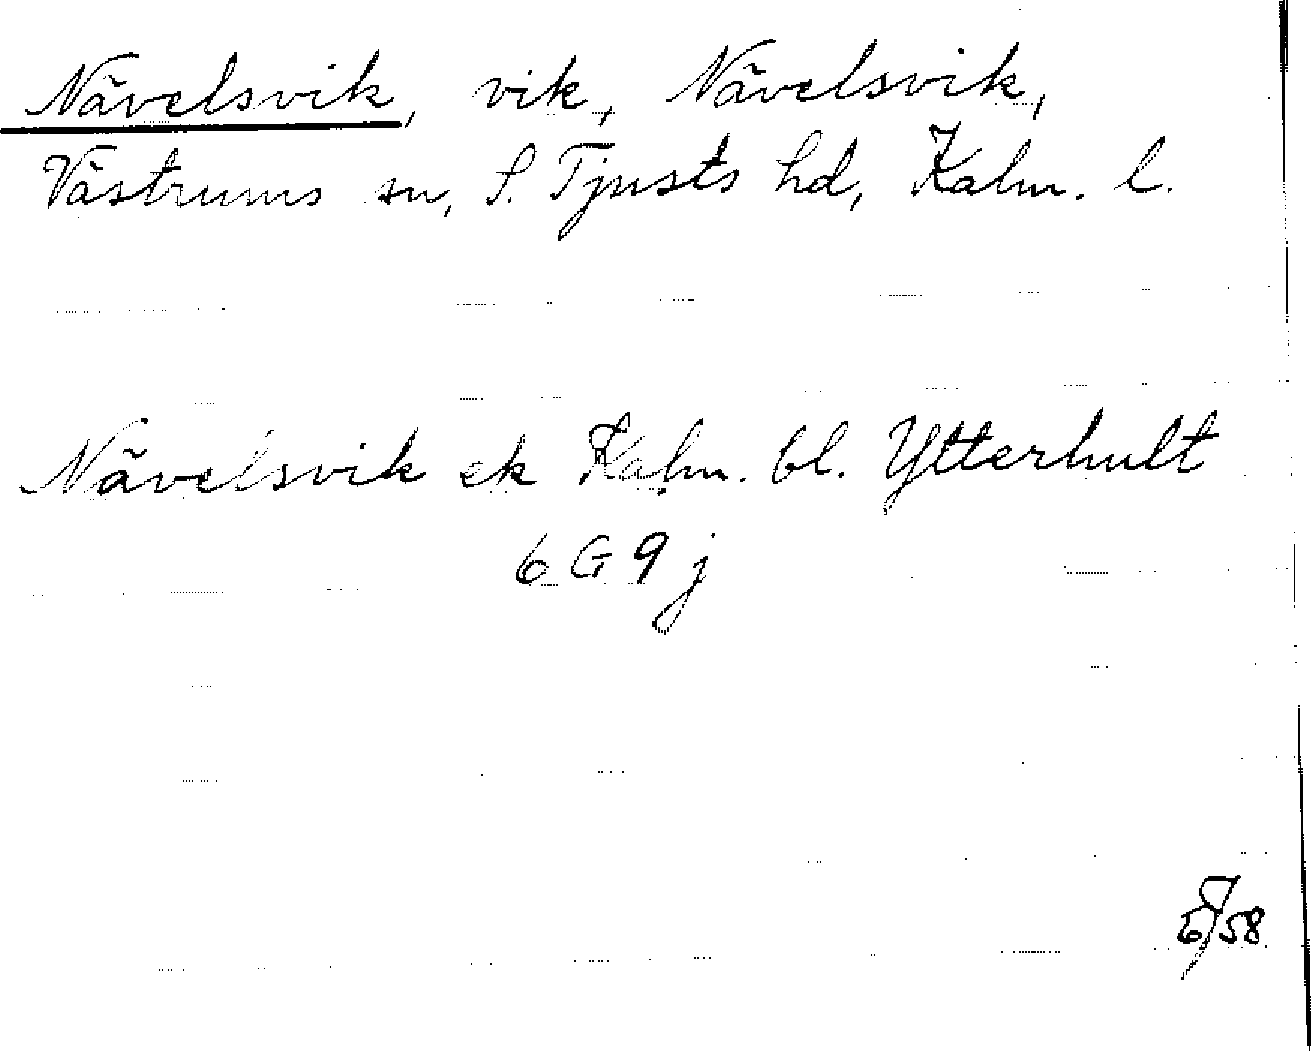 Nävelsvik, vik, Nävelsvik,
Västrums sn, S. Tjusts hd, Kalm. l.
Nävelsvik ek Kalm. bl. Ytterhult
6 G 9 j